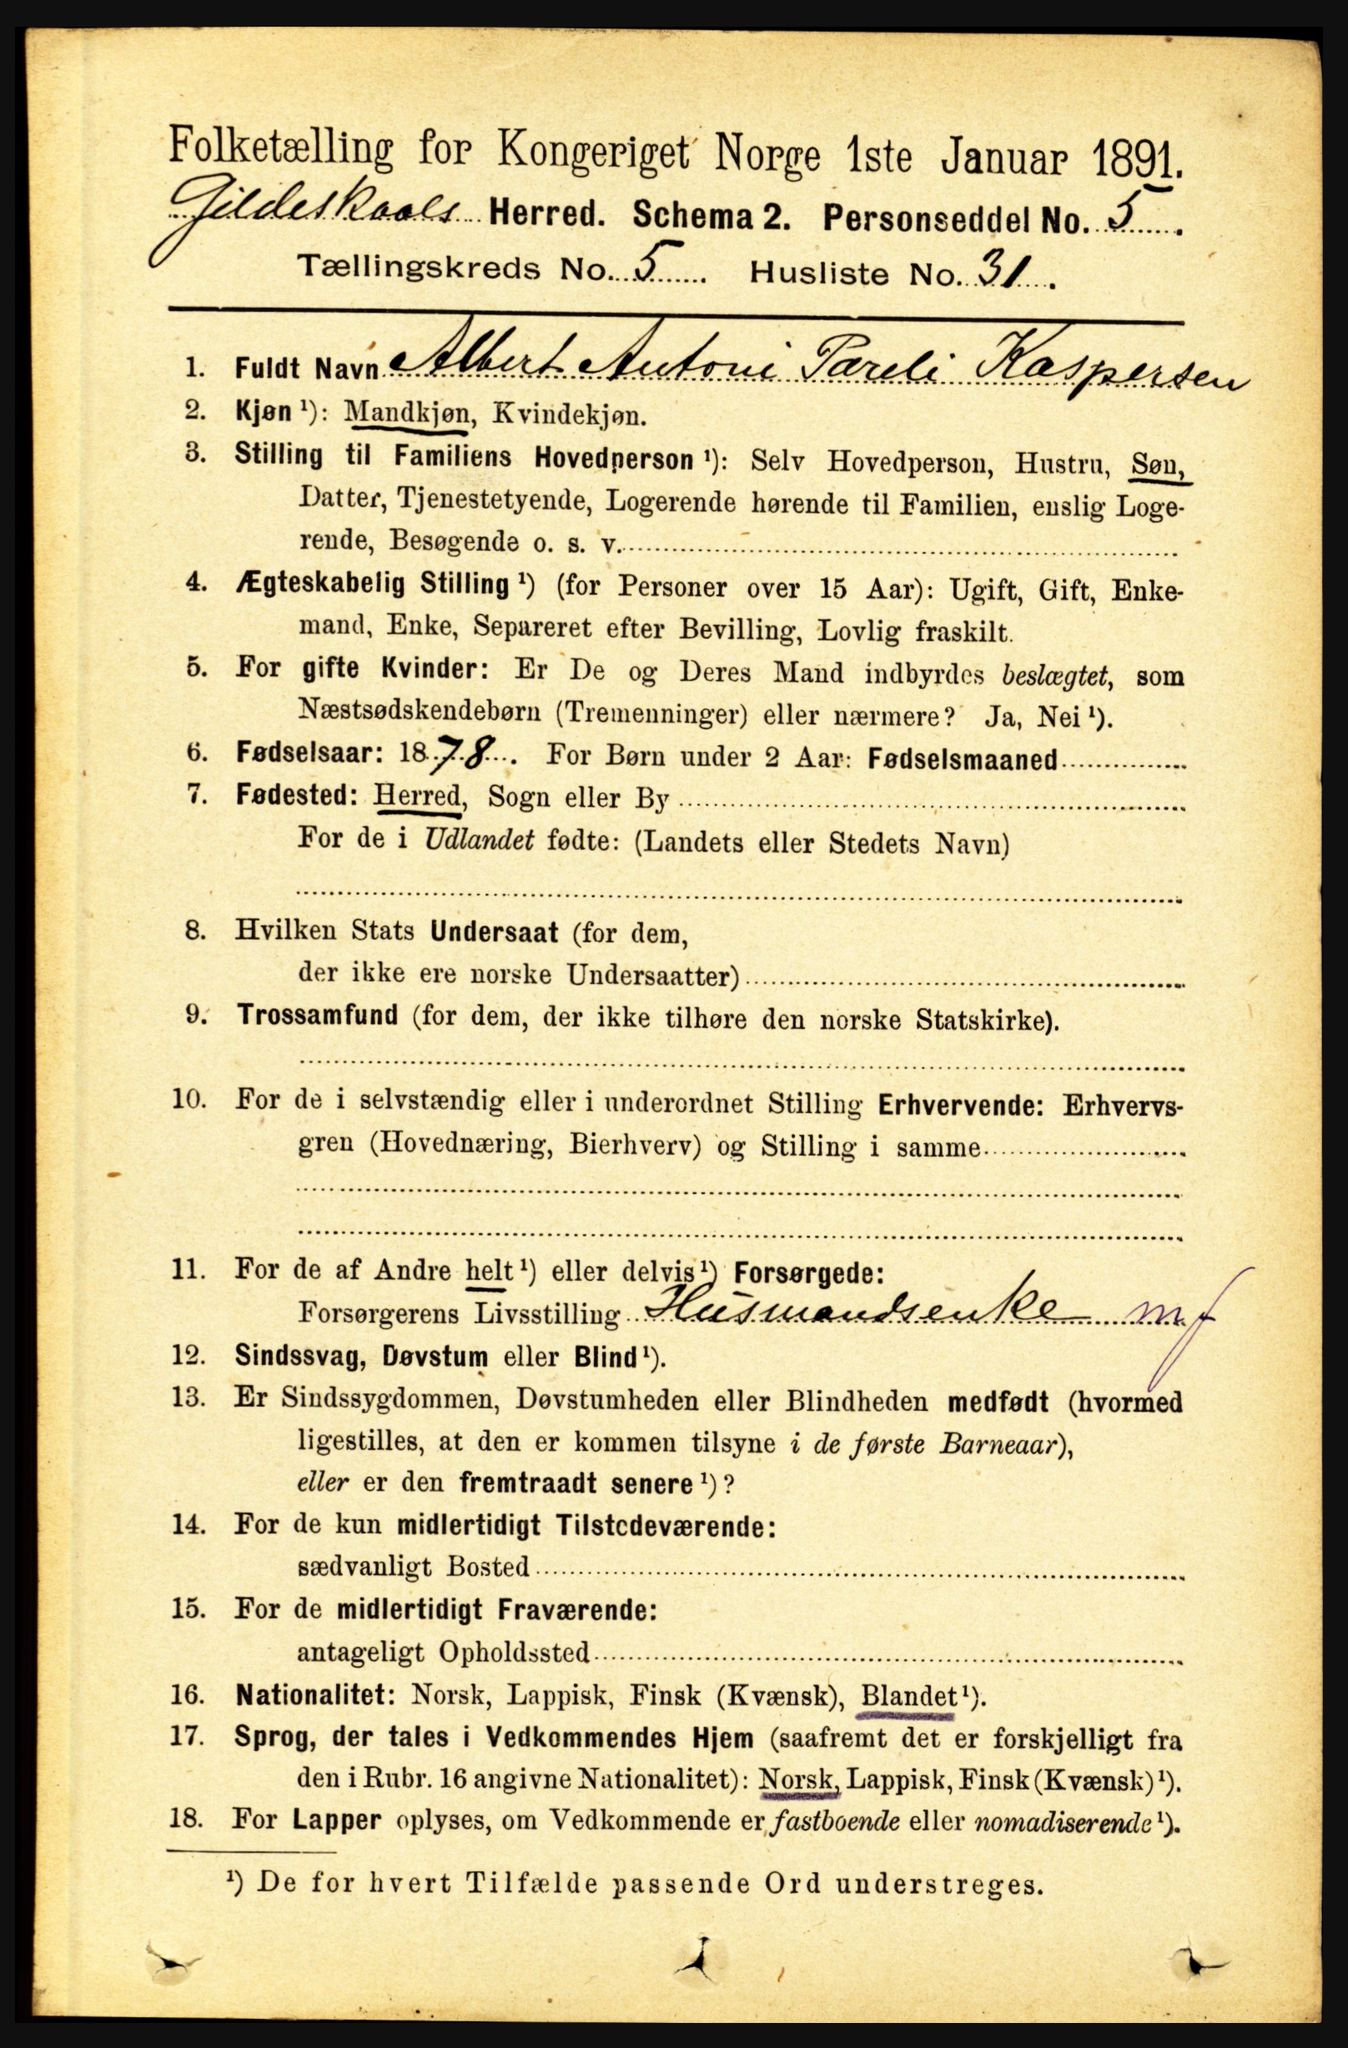 Folketælling for Kongeriget Norge 1ste Januar 1891.
Gildeskaals Herred. Schema 2. Personseddel No. 5.
Tællingskreds No. 5. Husliste No. 31.
1. Fuldt Navn Albert Antoni Pareli Kaspersen
2. Kjøn ¹): Mandkjøn, Kvindekjøn.
3. Stilling til Familiens Hovedperson ¹): Selv Hovedperson, Hustru, Søn,
Datter, Tjenestetyende, Logerende hørende til Familien, enslig Loge-
rende, Besøgende o. s. v.
4. Ægteskabelig Stilling ¹) (for Personer over 15 Aar): Ugift, Gift, Enke-
mand, Enke, Separeret efter Bevilling, Lovlig fraskilt.
5. For gifte Kvinder: Er De og Deres Mand indbyrdes beslægtet, som
Næstsødskendebørn (Tremenninger) eller nærmere? Ja, Nei ¹).
6. Fødselsaar: 1878. For Børn under 2 Aar: Fødselsmaaned
7. Fødested: Herred, Sogn eller By
For de i Udlandet fødte: (Landets eller Stedets Navn)
8. Hvilken Stats Undersaat (for dem,
der ikke ere norske Undersaatter)
9. Trossamfund (for dem, der ikke tilhøre den norske Statskirke).
10. For de i selvstændig eller i underordnet Stilling Erhvervende: Erhvervs-
gren (Hovednæring, Bierhverv) og Stilling i samme
11. For de af Andre helt ¹) eller delvis ¹) Forsørgede:
Forsørgerens Livsstilling Husmandsenke mf
12. Sindssvag, Døvstum eller Blind ¹).
13. Er Sindssygdommen, Døvstumheden eller Blindheden medfødt (hvormed
ligestilles, at den er kommen tilsyne i de første Barneaar),
eller er den fremtraadt senere ¹)?
14. For de kun midlertidigt Tilstedeværende:
sædvanligt Bosted
15. For de midlertidigt Fraværende:
antageligt Opholdssted
16. Nationalitet: Norsk, Lappisk, Finsk (Kvænsk), Blandet ¹).
17. Sprog, der tales i Vedkommendes Hjem (saafremt det er forskjelligt fra
den i Rubr. 16 angivne Nationalitet): Norsk, Lappisk, Finsk (Kvænsk) ¹).
18. For Lapper oplyses, om Vedkommende er fastboende eller nomadiserende ¹).
¹) De for hvert Tilfælde passende Ord understreges.